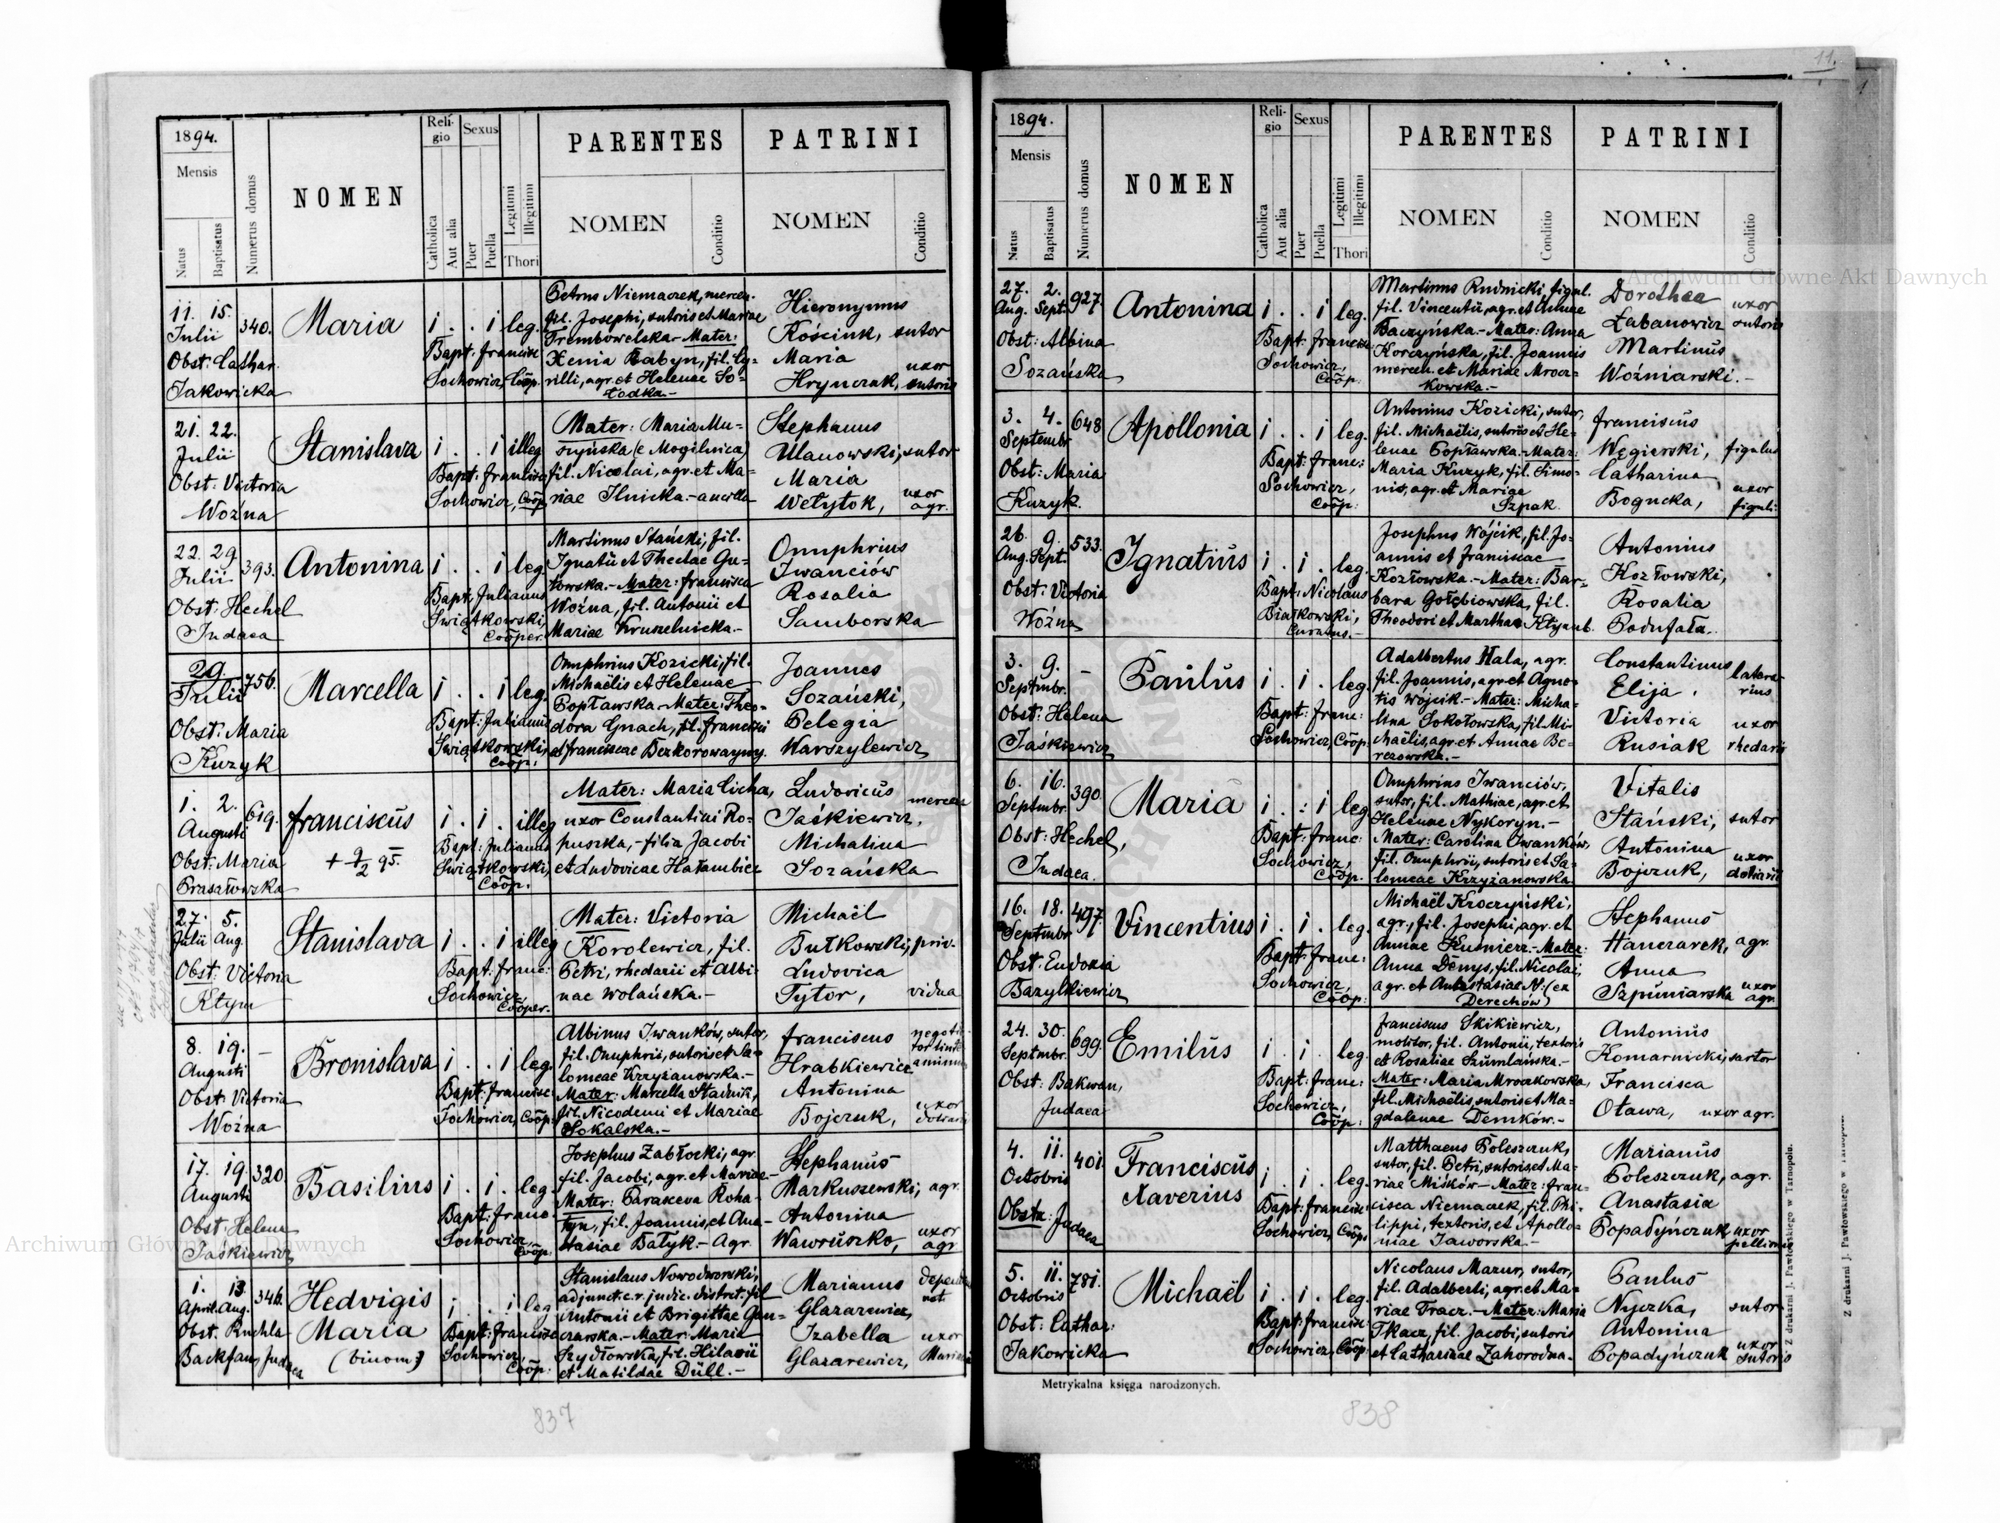 11.
1894.
Mensis
Natus
Baptisatus
Numerus domus
NOMEN
Religio
Catholica
Aut alia
Sexus
Puer
Puella
Legitimi
Illegitimi
Thori
PARENTES
NOMEN
Conditio
PATRINI
NOMEN
Conditio
11. 15. Julii
340.
Obst: Cathar.
Jakowicka
Maria
i . . i leg.
Bapt: Francisc
Sochowicz, Coop.
Petrus Niemaczek, mercen.
fil. Josephi, sutoris et Mariae
Trembowelska - Mater:
Xenia Babyn, fil. Cy-
rilli, agr. et Helenae So-
łodka.-
Hieronymus
Kościuk, sutor
Maria
Hrynczak, uxor sutoris
21. 22.
Julii
Obst: Victoria
Woźna
Stanislava
i . . i illeg
Bapt: Francisc
Sochowicz, Coop
Mater: Maria Mu-
szyńska (e Mogilnica)
fil. Nicolai, agr. et Ma-
riae Ilnicka.- ancilla
Stephanus
Ulanowski, sutor
Maria
Wełytok, uxor agr.
22. 29.
Julii
393.
Obst: Hechel
Judaea
Antonina
i . . i leg.
Bapt: Julianus
Świątkowski,
Cooper.
Martinus Stański, fil.
Ignatii et Theclae Gu-
towska.- Mater: Francisca
Woźna, fil. Antonii et
Mariae Kruszelnicka.-
Onuphrius
Iwanciów
Rosalia
Samborska
29
Julii
756.
Obst: Maria
Kuzyk
Marcella
i . . i leg.
Bapt: Julianus
Świątkowski,
Coop.
Onuphrius Kozicki, fil.
Michaëlis et Helenae
Popławska - Mater: Theo-
dora Gnach, fil. Francisci
et Franciscae Bezkorowayny.
Joannes
Sozański,
Pelegia
Warszylewicz
1. 2.
Augusti
619.
Obst: Maria
Prasałowska
Franciscus
+ 9/2 95.
i . i . illeg
Bapt: Julianus
Świątkowski,
Coop.
Mater: Maria Cicha,
uxor Constantini Ko-
puszka,- filia Jacobi
et Ludovicae Hałambiec
Ludovicus
Jaśkiewicz, mercen
Michalina
Sozańska
27. 5.
Julii Aug.
Obst: Victoria
Ktym
Stanislava
i . . i illeg
Bapt: Franc:
Sochowicz,
Cooper.
Mater: Victoria
Korolewicz, fil.
Petri, rhedarii et Albi-
nae Wolańska.-
Michaël
Butkowski, priv.
Ludovica
Tytor, vidua
8. 19.
Augusti
Obst: Victoria
Woźna
Bronislava
i . . i leg.
Bapt: Francisc:
Sochowicz, Coop:
Albinus Iwanków, sutor,
fil. Onuphrii, sutoris et Sa-
lomeae Krzyżanowska.-
Mater: Marcella Stadnik,
fil. Nicodemi et Mariae
Sokalska.-
Franciscus
Hrabkiewicz
Antonina
Bojczuk, uxor doliarii
17. 19.
Augusti
320.
Obst: Helena
Jaśkiewicz
Basilius
i . i . leg
Bapt: Franc:
Sochowicz,
Coop.
Josephus Zabłocki, agr.
fil. Jacobi, agr. et Mariae
Mater: Parasceva Roha-
tyn, fil. Joannis, et Ana-
stasiae Bałyk.- Agr
Stephanus
Markuszewski, agr.
Antonina
Wawruszko, uxor agr
1. 13.
April. Aug.
346.
Obst. Ruchla
Backfang Judaea
Hedvigis
Maria
(binom:)
i . . i leg
Bapt: Francisc
Sochowicz,
Coop:
Stanislaus Nowodworski,
adjunct. c.r. judic. district. fil
Antonii et Brigittae Gan-
czarska.- Mater: Maria
Szydłowska, fil. Hilarii
et Matildae Düll.-
Marianus
Glazarewicz,
Izabella
Glazarewicz, uxor Mariani
837
1894.
Mensis
Natus
Baptisatus
Numerus domus
NOMEN
Religio
Catholica
Aut alia
Sexus
Puer
Puella
Legitimi
Illegitimi
Thori
PARENTES
NOMEN
Conditio
PATRINI
NOMEN
Conditio
27. 2.
Aug. Sept.
927.
Obst: Albina
Sozańska
Antonina
i . . i leg.
Bapt: Francisc
Sochowicz,
Coop.
Martinus Rudnicki, figul.
fil. Vincentii, agr. et Annae
Baczyńska - Mater: Anna
Korczyńska, fil. Joannis
mercen. et Mariae Mrocz-
kowska.-
Dorothea
Łabanowicz uxor sutoris
Martinus
Woźniarski.-
3. 4.
Septembr.
648
Obst: Maria
Kuzyk.
Apollonia
i . . i leg.
Bapt: Franc:
Sochowicz,
Coop:
Antonius Kozicki, sutor,
fil. Michaëlis, sutoris et He-
lenae Popławska.- Mater:
Maria Kuzyk, fil. Simo-
nis, agr. et Mariae
Szpak.
Franciscus
Węgierski, figulus
Catharina
Bogucka, uxor figuli
26. 9.
Aug. Sept.
533.
Obst: Victoria
Woźna
Ignatius
i . i . leg.
Bapt: Nicolaus
Białkowski,
Curatus.-
Josephus Wójcik, fil. Jo-
annis et Franciscae
Kozłowska.- Mater: Bar-
bara Gołębiowska, fil.
Theodori et Marthae Klyamb.
Antonius
Kozłowski,
Rosalia
Podufała.
3. 9.
Septmbr.
Obst: Helena
Jaśkiewicz
Paulus
i . i . leg.
Bapt: Franc:
Sochowicz, Coop:
Adalbertus Hala, agr.
fil. Joannis, agr. et Agne-
tis Wójcik.- Mater: Micha-
lina Sokołowska, fil. Mi-
chaëlis, agr. et Annae Be-
rezowska.-
Constantinus
Elija. laterarius
Victoria
Rusiak uxor rhedarii
6. 16.
Septmbr.
390
Obst: Hechel,
Judaea.
Maria
i . : i leg
Bapt: Franc:
Sochowicz,
Coop.
Onuphrius Iwanciów,
sutor, fil. Mathiae, agr. et
Helenae Nykoryn.-
Mater: Carolina Iwanków,
fil. Onuphrii, sutoris et Sa-
lomeae Krzyżanowska.
Vitalis
Stański, sutor
Antonina
Bojczuk, uxor doliarii
16. 18.
Septmbr.
497.
Obst. Eudoxia
Bazylkiewicz
Vincentius
i . i . leg.
Bapt: Franc:
Sochowicz,
Coop:
Michaël Kroczyński,
agr., fil. Josephi, agr. et
Annae Kusnierz.- Mater:
Anna Denys, fil. Nicolai,
agr. et Anastasiae N: (ex
Derechów)
Stephanus
Hanczarek, agr.
Anna
Szpuniarska uxor agr.
24. 30.
Septmbr.
699.
Obst: Bakwan,
Judaea
Emilus
i . i . leg.
Bapt: Franc:
Sochowicz,
Coop:
Franciscus Skikiewicz,
molitor, fil. Antonii, textoris
et Rosaliae Szumlańska.-
Mater: Maria Mroczkowska,
fil. Michaëlis, sutoris et Ma-
gdalenae Demków.-
Antonius
Komarnicki, sartor
Francisca
Oława, uxor agr.
4. 11.
Octobris
401.
Obstr: Judaea
Franciscus
Xaverius
i . i . leg.
Bapt: Francisc:
Sochowicz, Coop:
Matthaeus Poleszczuk,
sutor, fil. Petri, sutoris, et Ma-
riae Miśków - Mater: Fran-
cisca Niemaczek, fil. Phi-
lippi, textoris, et Apollo-
niae Jaworska.-
Marianus
Poleszczuk, agr.
Anastasia
Popadyńczuk uxor pellionis
5. 11.
Octobris
781.
Obst: Cathar:
Jakowicka
Michaël
i . i . leg.
Bapt: Francisc:
Sochowicz, Coop:
Nicolaus Mazur, sutor,
fil. Adalberti, agr. et Ma-
riae Tracz.- Mater: Maria
Tkacz, fil. Jacobi, sutoris
et Catharinae Zahorodna.-
Paulus
Nyczka, sutor
Antonina
Popadyńczuk uxor sutoris
Metrykalna księga narodzonych.
838
Z drukarni J. Pawłowskiego w Tarnopolu.
Z drukarni J. Pawłowskiego w Tarnopolu
Archiwum Główne Akt Dawnych
Archiwum Główne Akt Dawnych